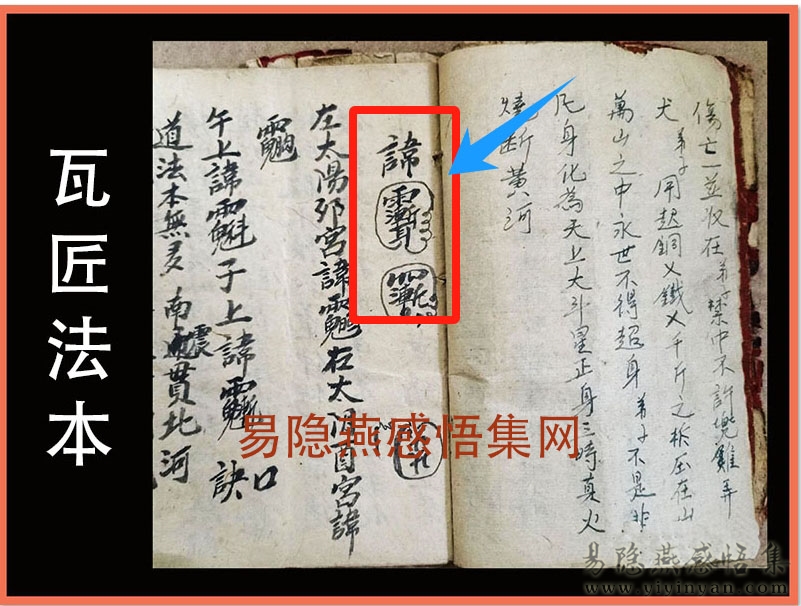 瓦匠法本
傷亡一並收在弟子禁中不許兇雞弄
犬弟子用起銅乂鐵乂千斤之板压在山
萬山之中永世不得超身弟子不是非
凡身化為天上大斗星正身三時真火
燒断黄河
諱
左太陽卯宮諱右太陽酉宮諱
午上諱子上諱
口訣
道法本無多南貫北河
易隐燕感悟集网
易隐燕感悟集
www.yiyinyan.com